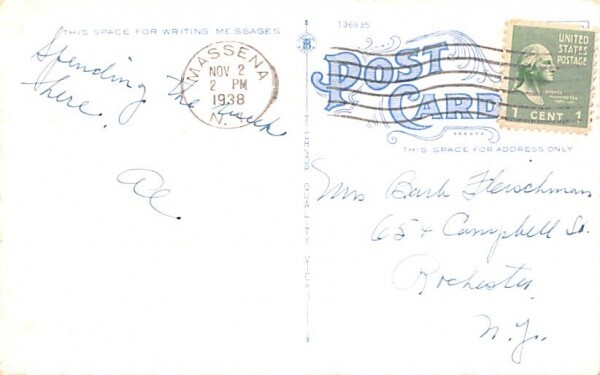 THIS SPACE FOR WRITING MESSAGES
136635
Spending the week
here.
Al.
MASSENA
NOV 2
2 PM
1938
N.
POST
CARD
THIS SPACE FOR ADDRESS ONLY
UNITED
STATES
POSTAGE
GEORGE
WASHINGTON
1 CENT 1
QUALITY
Mrs Barb Fleischman
65 Campbell St.
Rochester,
N.Y.